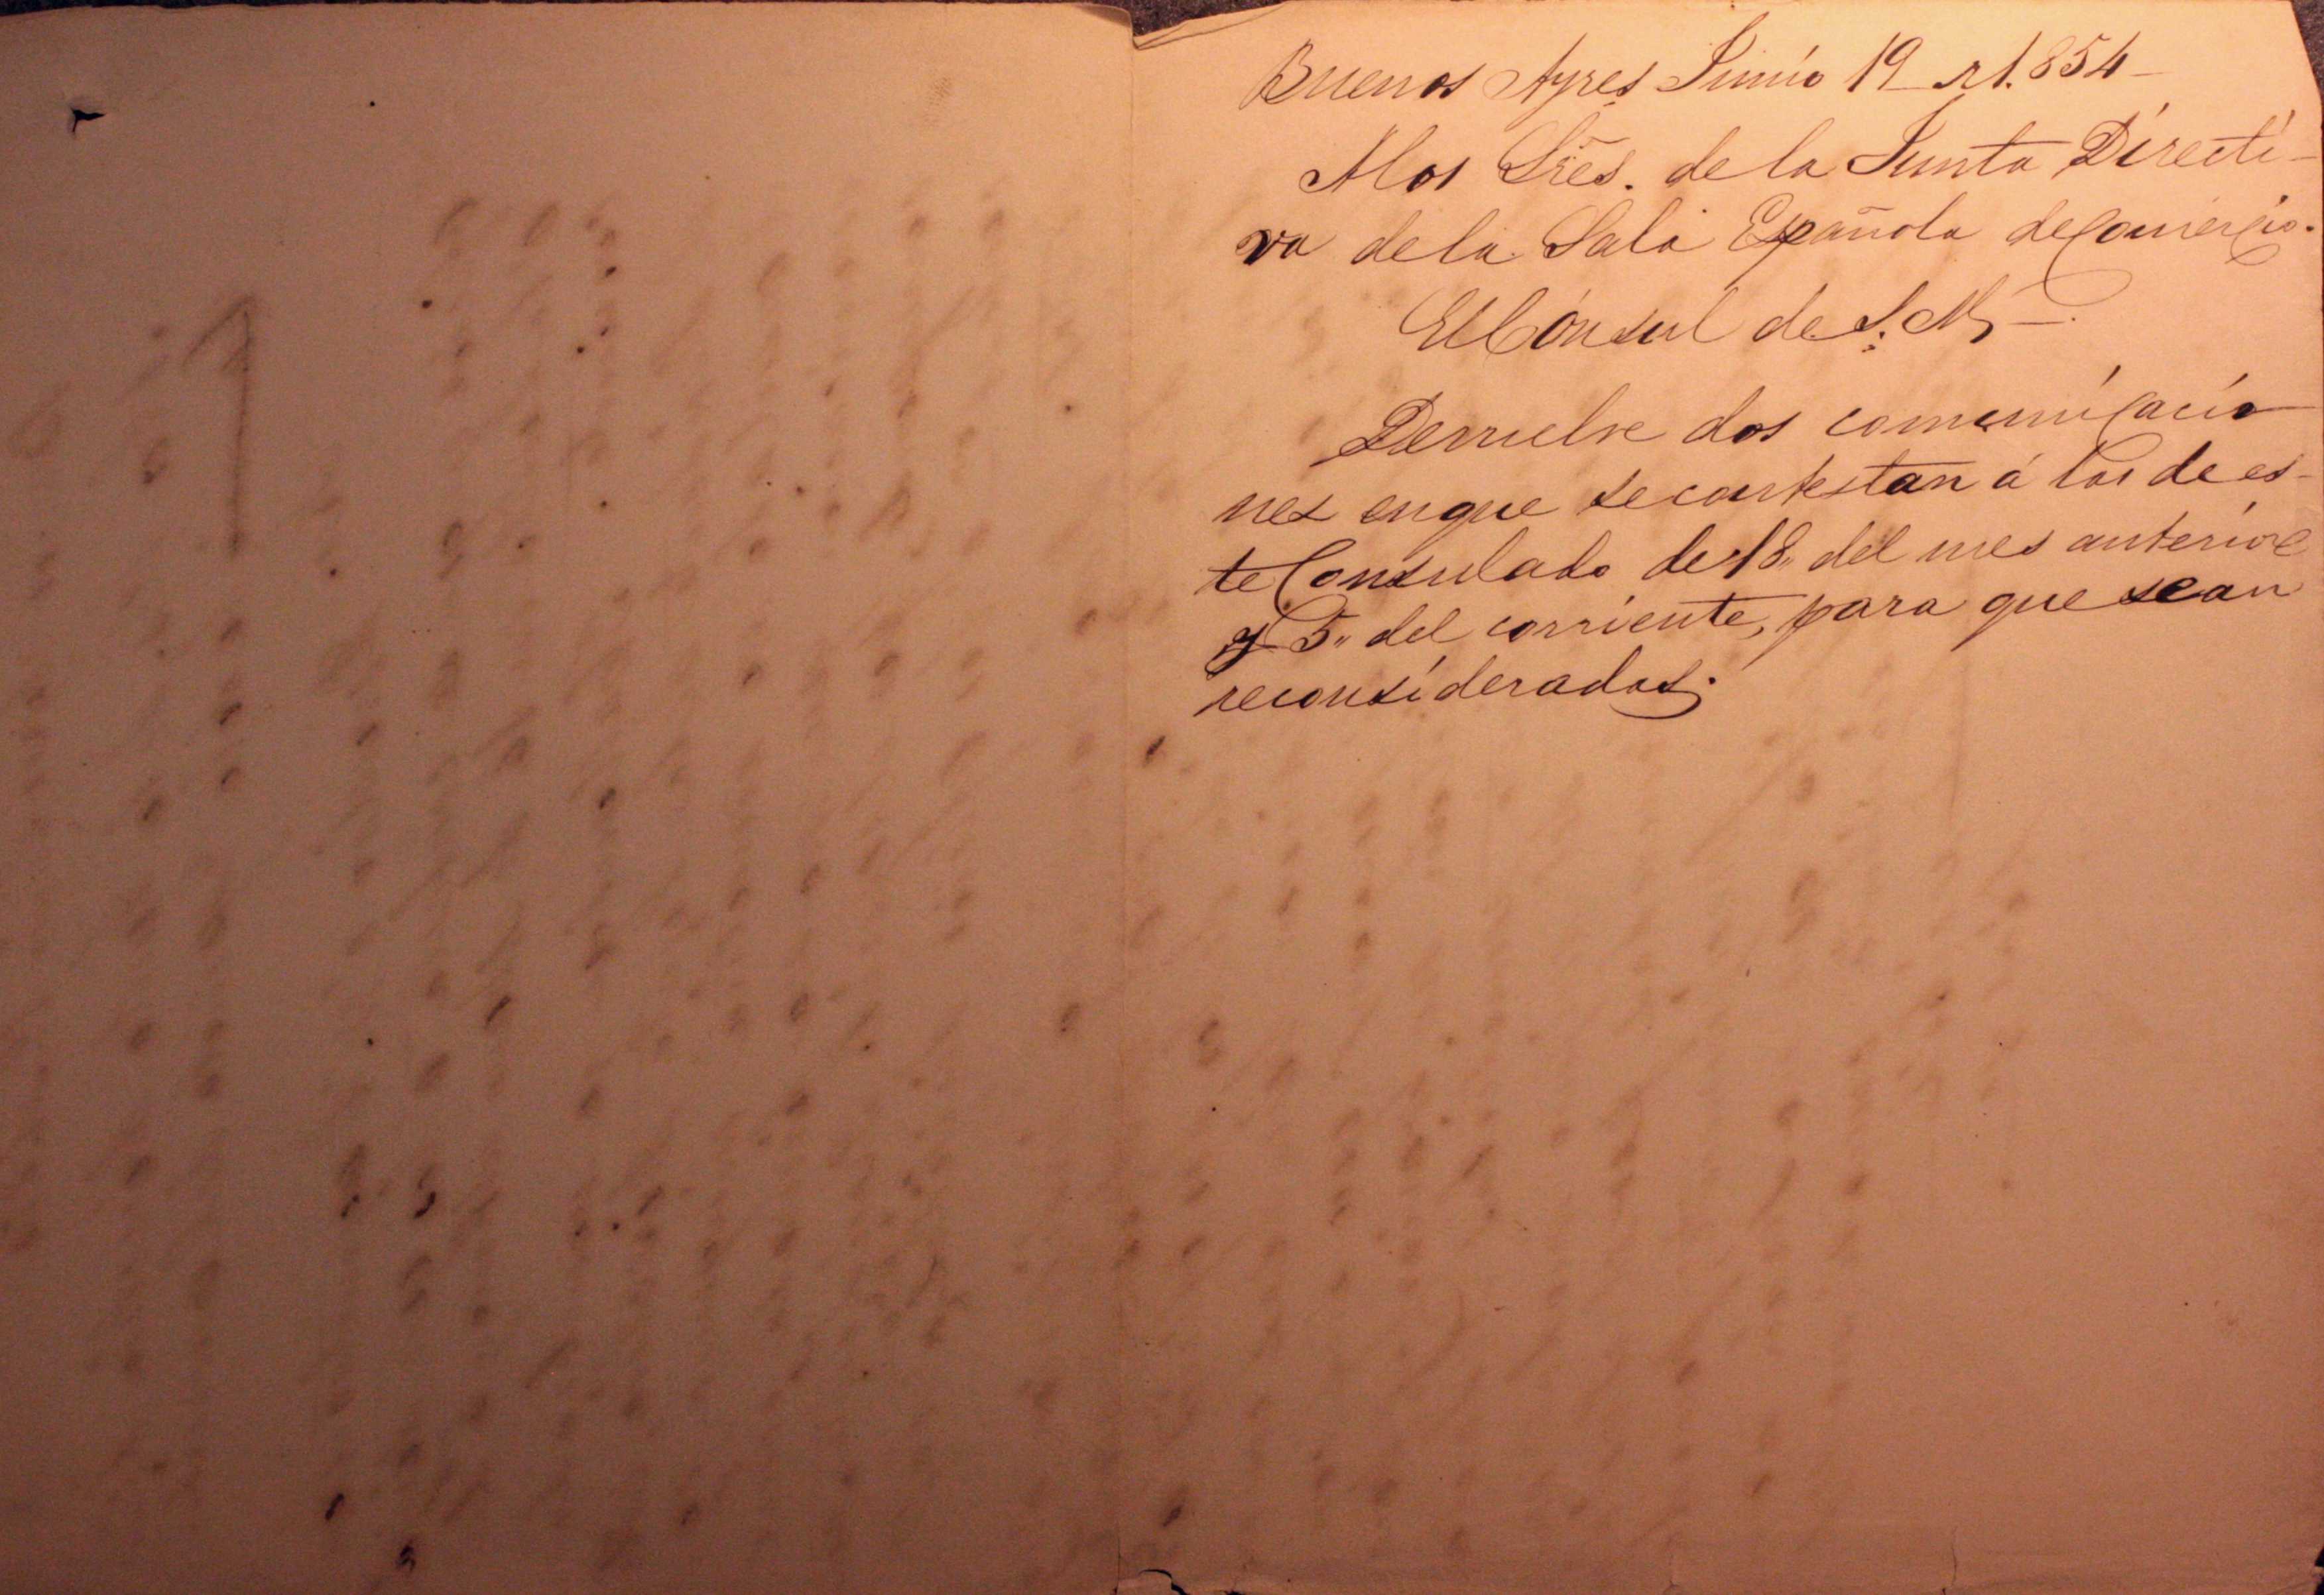 Buenos Ayres Junio 19 _ de 1.854 _
A los Sres. de la Junta Directi-
va de la Sala Española de Comercio.
El Cónsul de S. M. _.
Devuelve dos comunicacio
nes en que se contestan á las de es-
te Consulado de 18,, del mes anterior
y 5,, del corriente, para que sean
reconsideradas.